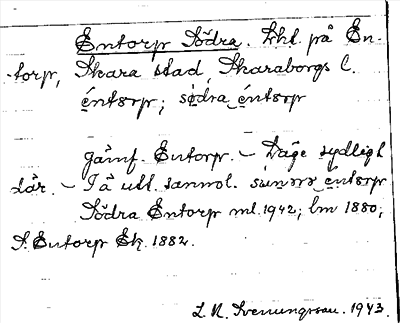 Entorp Södra. Lht. på En-
torp, Skara stad, Skaraborgs l.
éntorp; södra éntorp
Jämf. Entorp. – Läge sydligt
där. – I ä utt. sannol. sunnra éntorp
Södra Entorp ml. 1942; lm 1880;
S. Entorp Ek. 1882.
L. N. Svenungsson. 1943.